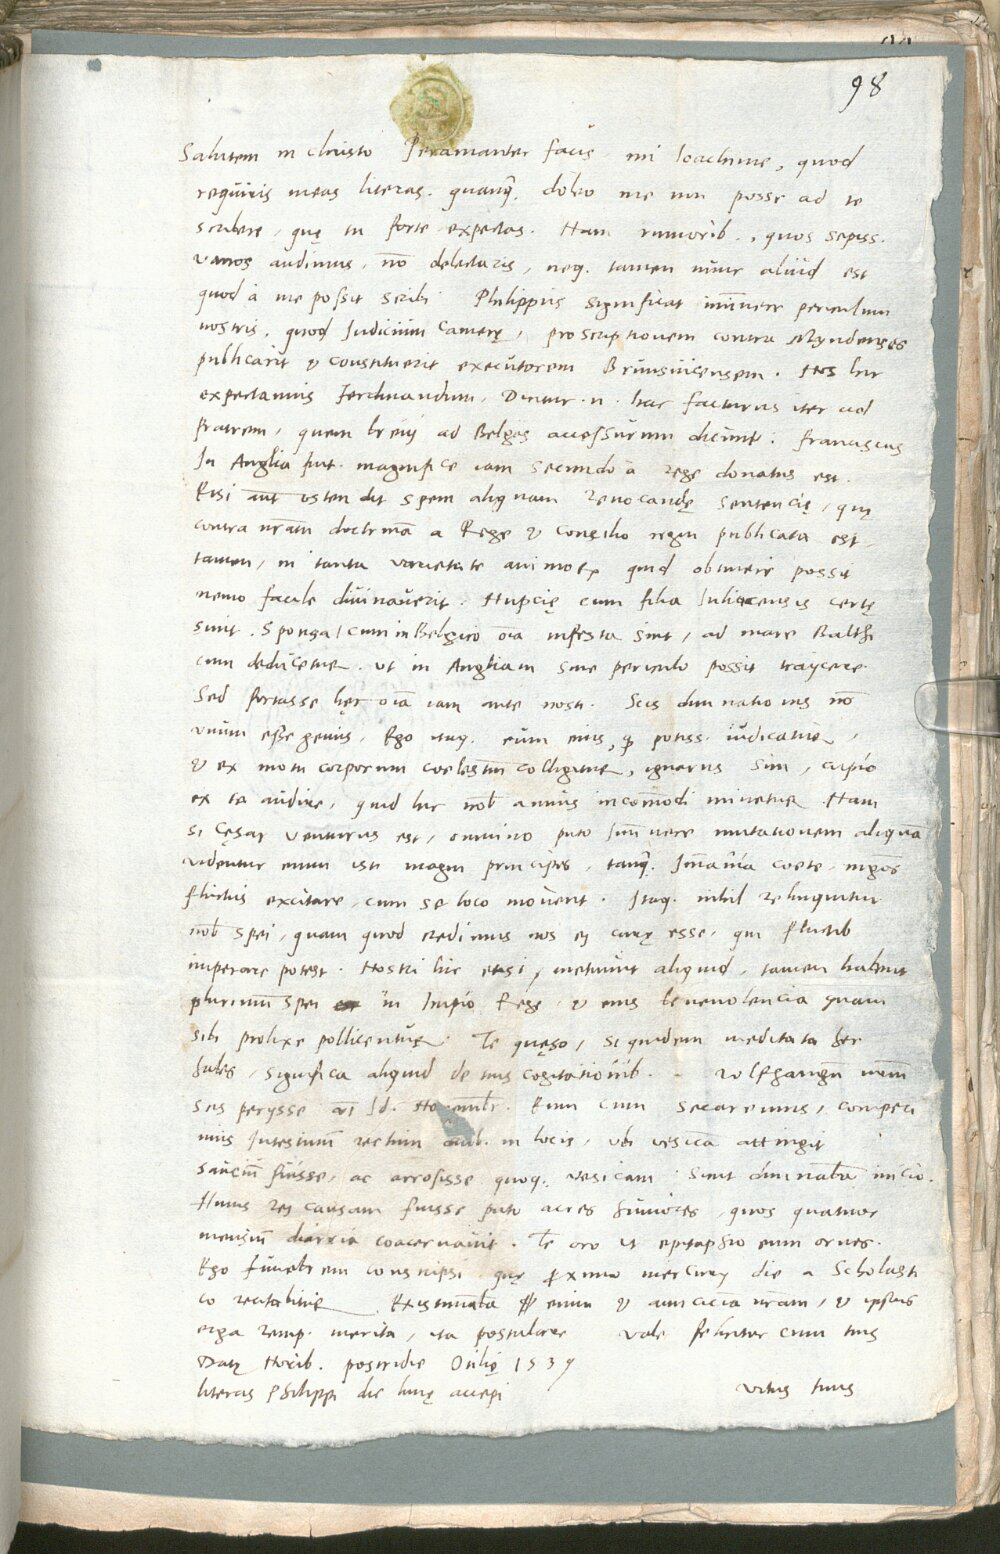 98
Salutem in christo Peramanter facis, mi Ioachime, quod
requiris meas literas. quanq̃. doleo me non posse ad te
scribere, quę tu forte expectas. Nam rumorib., quos sepiss.
vanos audimus, nõ delectaris, neq. tamen nunc aliud est
quod à me possit scribi Philippus significat imĩnere periculum
nostris, quod Iudicium Camerę, proscriptionem contra Myndenses
publicarit & constituerit executorem Brunsuicensem. Nos hic
expectamus Ferdinandum, Dicitur .n. hac facturus iter ad
fratrem, quem breui ad Belgas accessurum dicunt. Franciscus
In Anglia fuit. magnifice iam secundo à rege donatus est.
Etsi aũt ostendit spem aliquam reuocandę sentencię, quę
contra nr̃am doctrinã a Rege & Consilio regni publicata est,
tamen, in tanta varietate animoꝝ quid obtinere possit
nemo facile diuinauerit. Nupcię cum filia Iuliacensis certę
sunt. Sponsa, cum in Belgico oĩa infesta sint, ad mare Balthi
cum deducetur. vt in Angliam sine periculo possit traijcere.
Sed fortasse hęc oĩa iam ante nosti. Scis diuinationis nõ
vnum esse genus, Ego itaq. cum eius, q̃ potiss. iudicatur,
& ex motu corporum coelestium colligitur, ignarus sim, cupio
ex te audire, quid hic nob̃ annus incom̃odi minetur. Nam
si Cęsar venturus est, omnino puto Im̃inere mutationem aliquã
videntur enim isti magni principes, tanq̃. Im̃ania coete, mg̃os
fluctus excitare, cum se loco mouent. Itaq. nihil relinquitur
nob̃ spei, quam quod credimus nos ei curę esse, qui fluctib
imperare potest. Nostri hic etsi, metuunt aliquid, tamen habent
plurimum spei in Imp̃io Rege & eius beneuolencia quam
sibi prolixe pollicentur. Te quęso, si quidem meditata her
habes, significa aliquid de tuis cogitationib. - Wolfgangũ nr̃m
scis perijsse Id. Eum cum secaremus, comperi
mus Intestinum rectum in locis, vbi vesicã attingit
sauciũ fuisse, ac arrosisse quoq. vesicam inicio.
Huius rei causam fuisse puto acres humores, quos quatuor
mensium diarria coacernauit. Te oro vt epitaphio eum ornes.
Ego funebrem conscripsi quę proximo mercurij die a Scholasti
co recitabitur enim & amiciciã nr̃am, & ipsius
erga remp. merita, ita postulare Vale feliciter cum tuis
Datę Norib. postridie Otilię 1539
literas Philippi die lunę accepi Vitus tuus